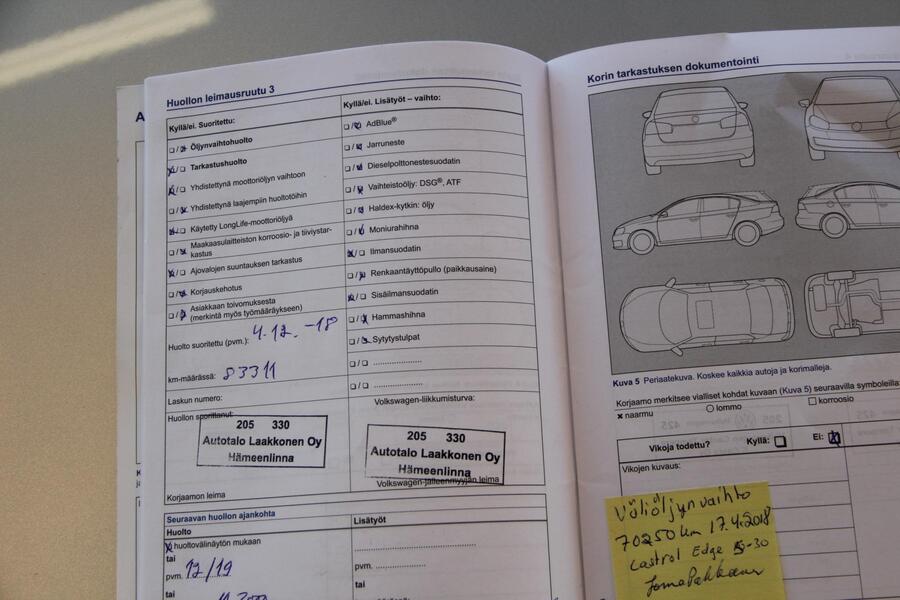 Huollon leimausruutu 3
Kyllä/ei. Suoritettu:
Öljynvaihtohuolto
Tarkastushuolto
Yhdistettynä moottoriöljyn vaihtoon
Yhdistettynä laajempiin huoltotöihin
Käytetty LongLife-moottoriöljyä
Maakaasulaitteiston korroosio- ja tiiviystar-
kastus
Ajovalojen suuntauksen tarkastus
Korjauskehotus
Asiakkaan toivomuksesta
(merkintä myös työmääräykseen)
Huolto suoritettu (pvm.): 4.12.-18
km-määrässä: 83311
Laskun numero:
Huollon suorittanut:
205 330
Autotalo Laakkonen Oy
Hämeenlinna
Korjaamon leima
Kyllä/ei. Lisätyöt – vaihto:
AdBlue®
Jarruneste
Dieselpolttonestesuodatin
Vaihteistoöljy: DSG®, ATF
Haldex-kytkin: öljy
Moniurahihna
Ilmansuodatin
Renkaantäyttöpullo (paikkausaine)
Sisäilmansuodatin
Hammashihna
Sytytystulpat
Volkswagen-liikkumisturva:
205 330
Autotalo Laakkonen Oy
Hämeenlinna
Volkswagen-jälleenmyyjän leima
Seuraavan huollon ajankohta
Huolto
huoltovälinäytön mukaan
tai
pvm. 12/19
tai
Lisätyöt
pvm.
tai
Korin tarkastuksen dokumentointi
Kuva 5 Periaatekuva. Koskee kaikkia autoja ja korimalleja.
Korjaamo merkitsee vialliset kohdat kuvaan (Kuva 5) seuraavilla symboleilla:
× naarmu
lommo
korroosio
Vikoja todettu? Kyllä: Ei:
Vikojen kuvaus:
Väliöljynvaihto
70250 km 17.4.2018
Castrol Edge 5-30